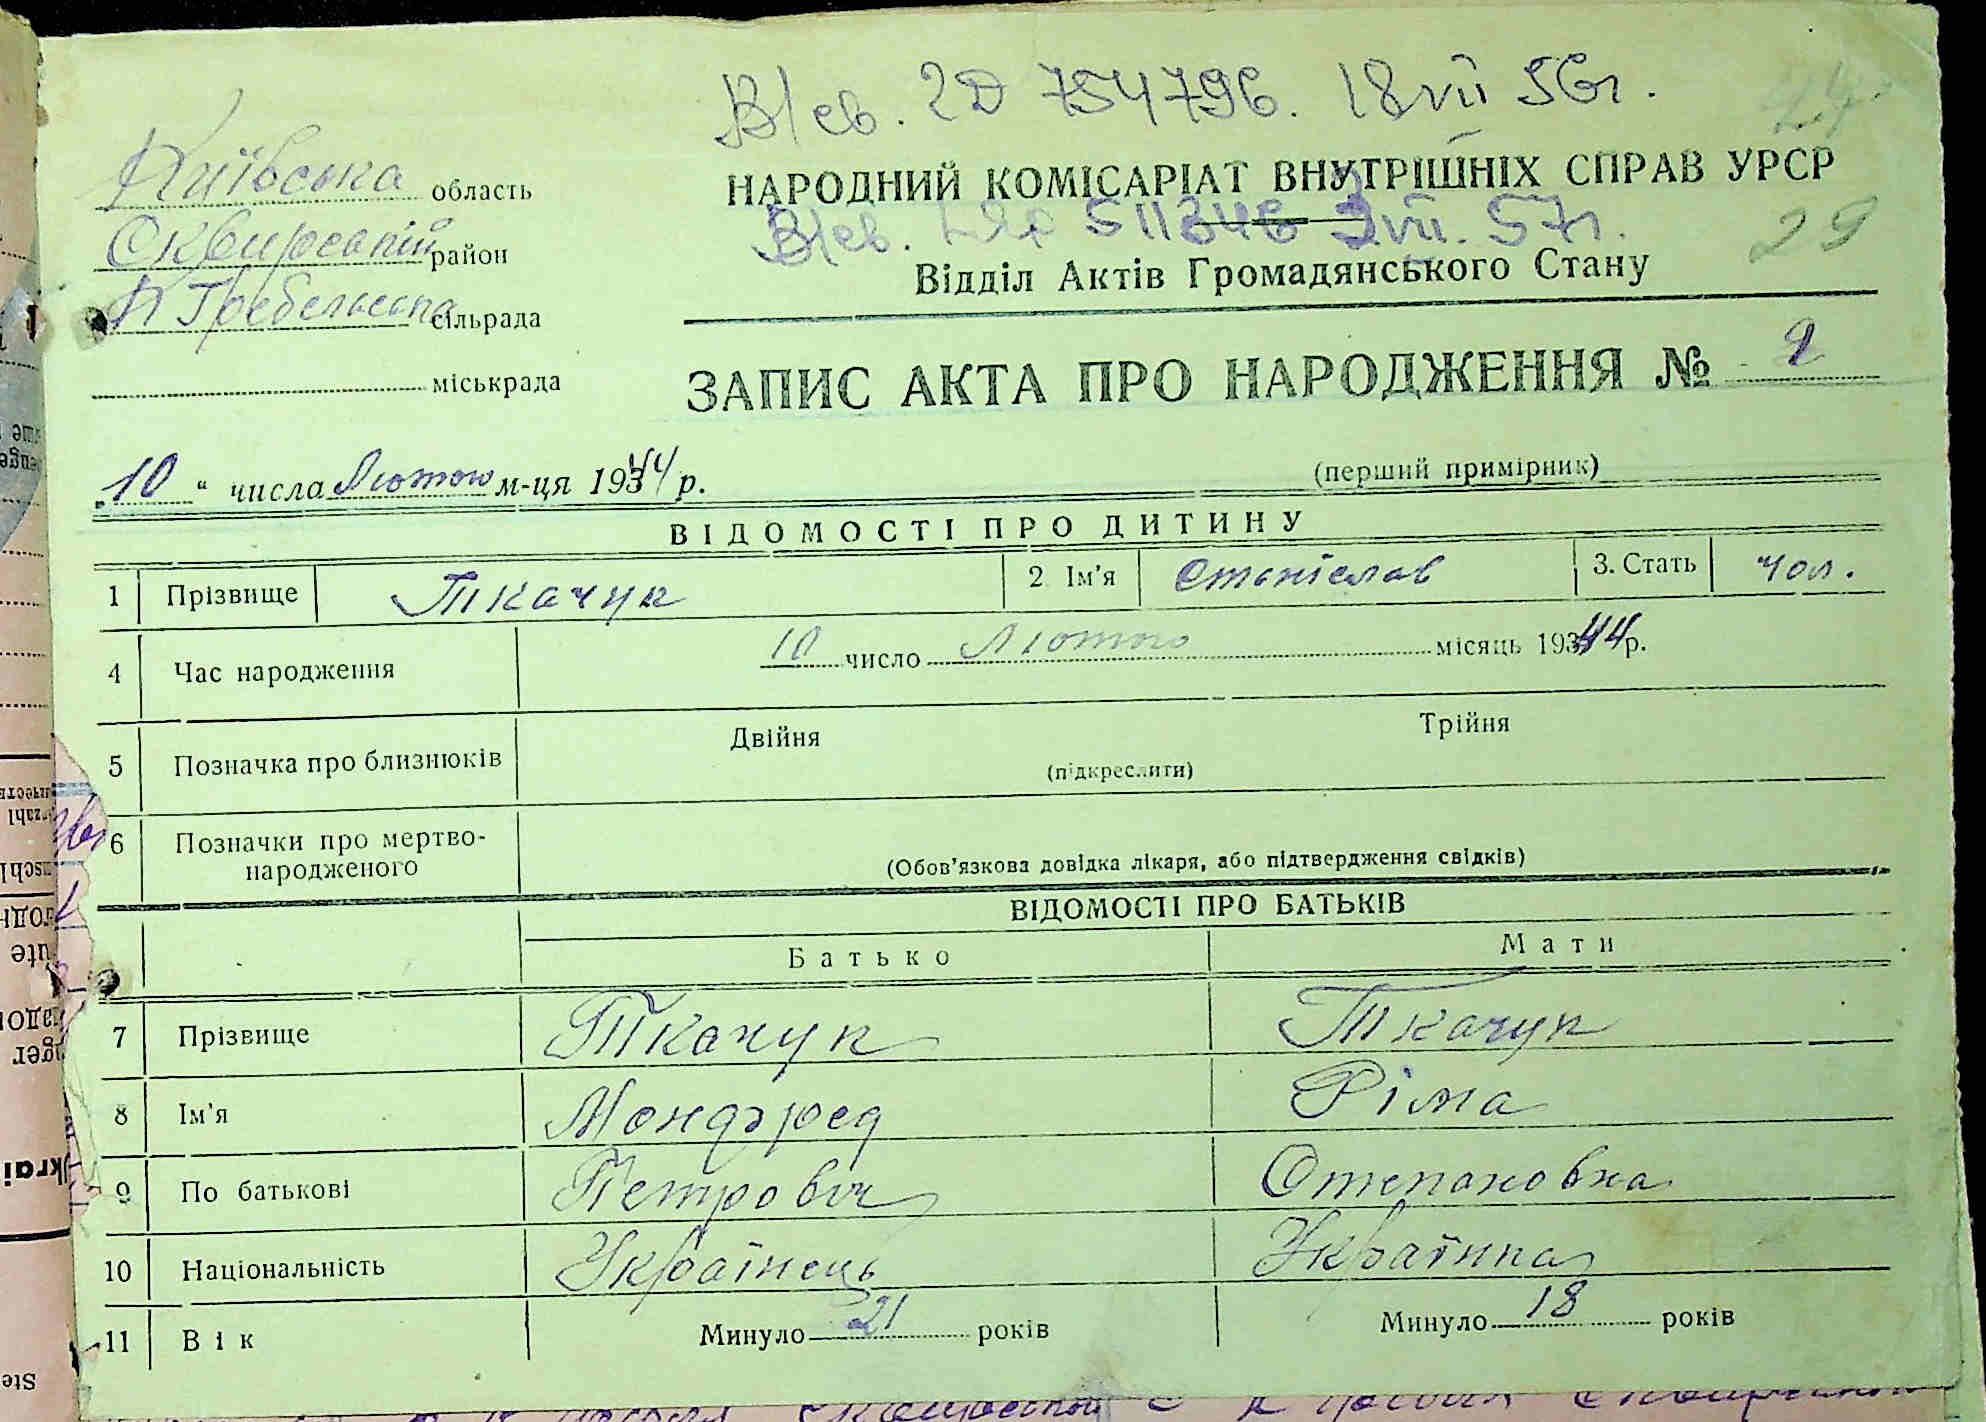 В/св. 2Д 754796. 18 VII 56г.
Київська область
НАРОДНИЙ КОМІСАРІАТ ВНУТРІШНІХ СПРАВ УРСР
29
Сквирський район
В/св. 511346 3 VII. 57г.
Відділ Актів Громадянського Стану
Гребельська сільрада
міськрада
ЗАПИС АКТА ПРО НАРОДЖЕННЯ № 2
„10“ числа Лютого м-ця 1944 р.
(перший примірник)
ВІДОМОСТІ ПРО ДИТИНУ
1 Прізвище Ткачук 2. Ім'я Станіслав 3. Стать чол.
4 Час народження 10 число Лютого місяць 1944 р.
5 Позначка про близнюків Двійня Трійня
(підкреслити)
6 Позначки про мертво-
народженого
(Обов'язкова довідка лікаря, або підтвердження свідків)
ВІДОМОСТІ ПРО БАТЬКІВ
Батько Мати
7 Прізвище Ткачук Ткачук
8 Ім'я Монфред Ріма
9 По батькові Петровіч Степановна
10 Національність Українець Українка
11 Вік Минуло 21 років Минуло 18 років